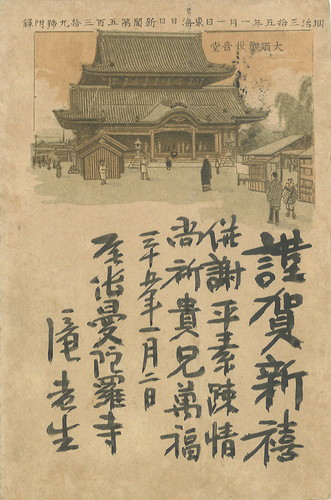 明治三拾五年一月一日東海日日新聞第五百三拾九號附録
大須觀世音堂
謹賀新禧
併謝平素踈情
尚祈貴兄萬福
三十五年一月二日
尾張曼陀羅寺